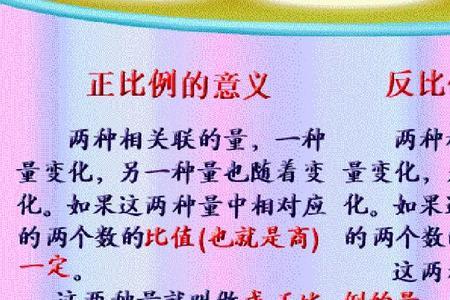 正比例的意义
两种相关联的量，一种
量变化，另一种量也随着变
化。如果这两种量中相对应
的两个数的比值(也就是商)
一定。
这两种量就叫做成正比
反比
两种
量变化，
化。如果
的两个数
这两
例的量